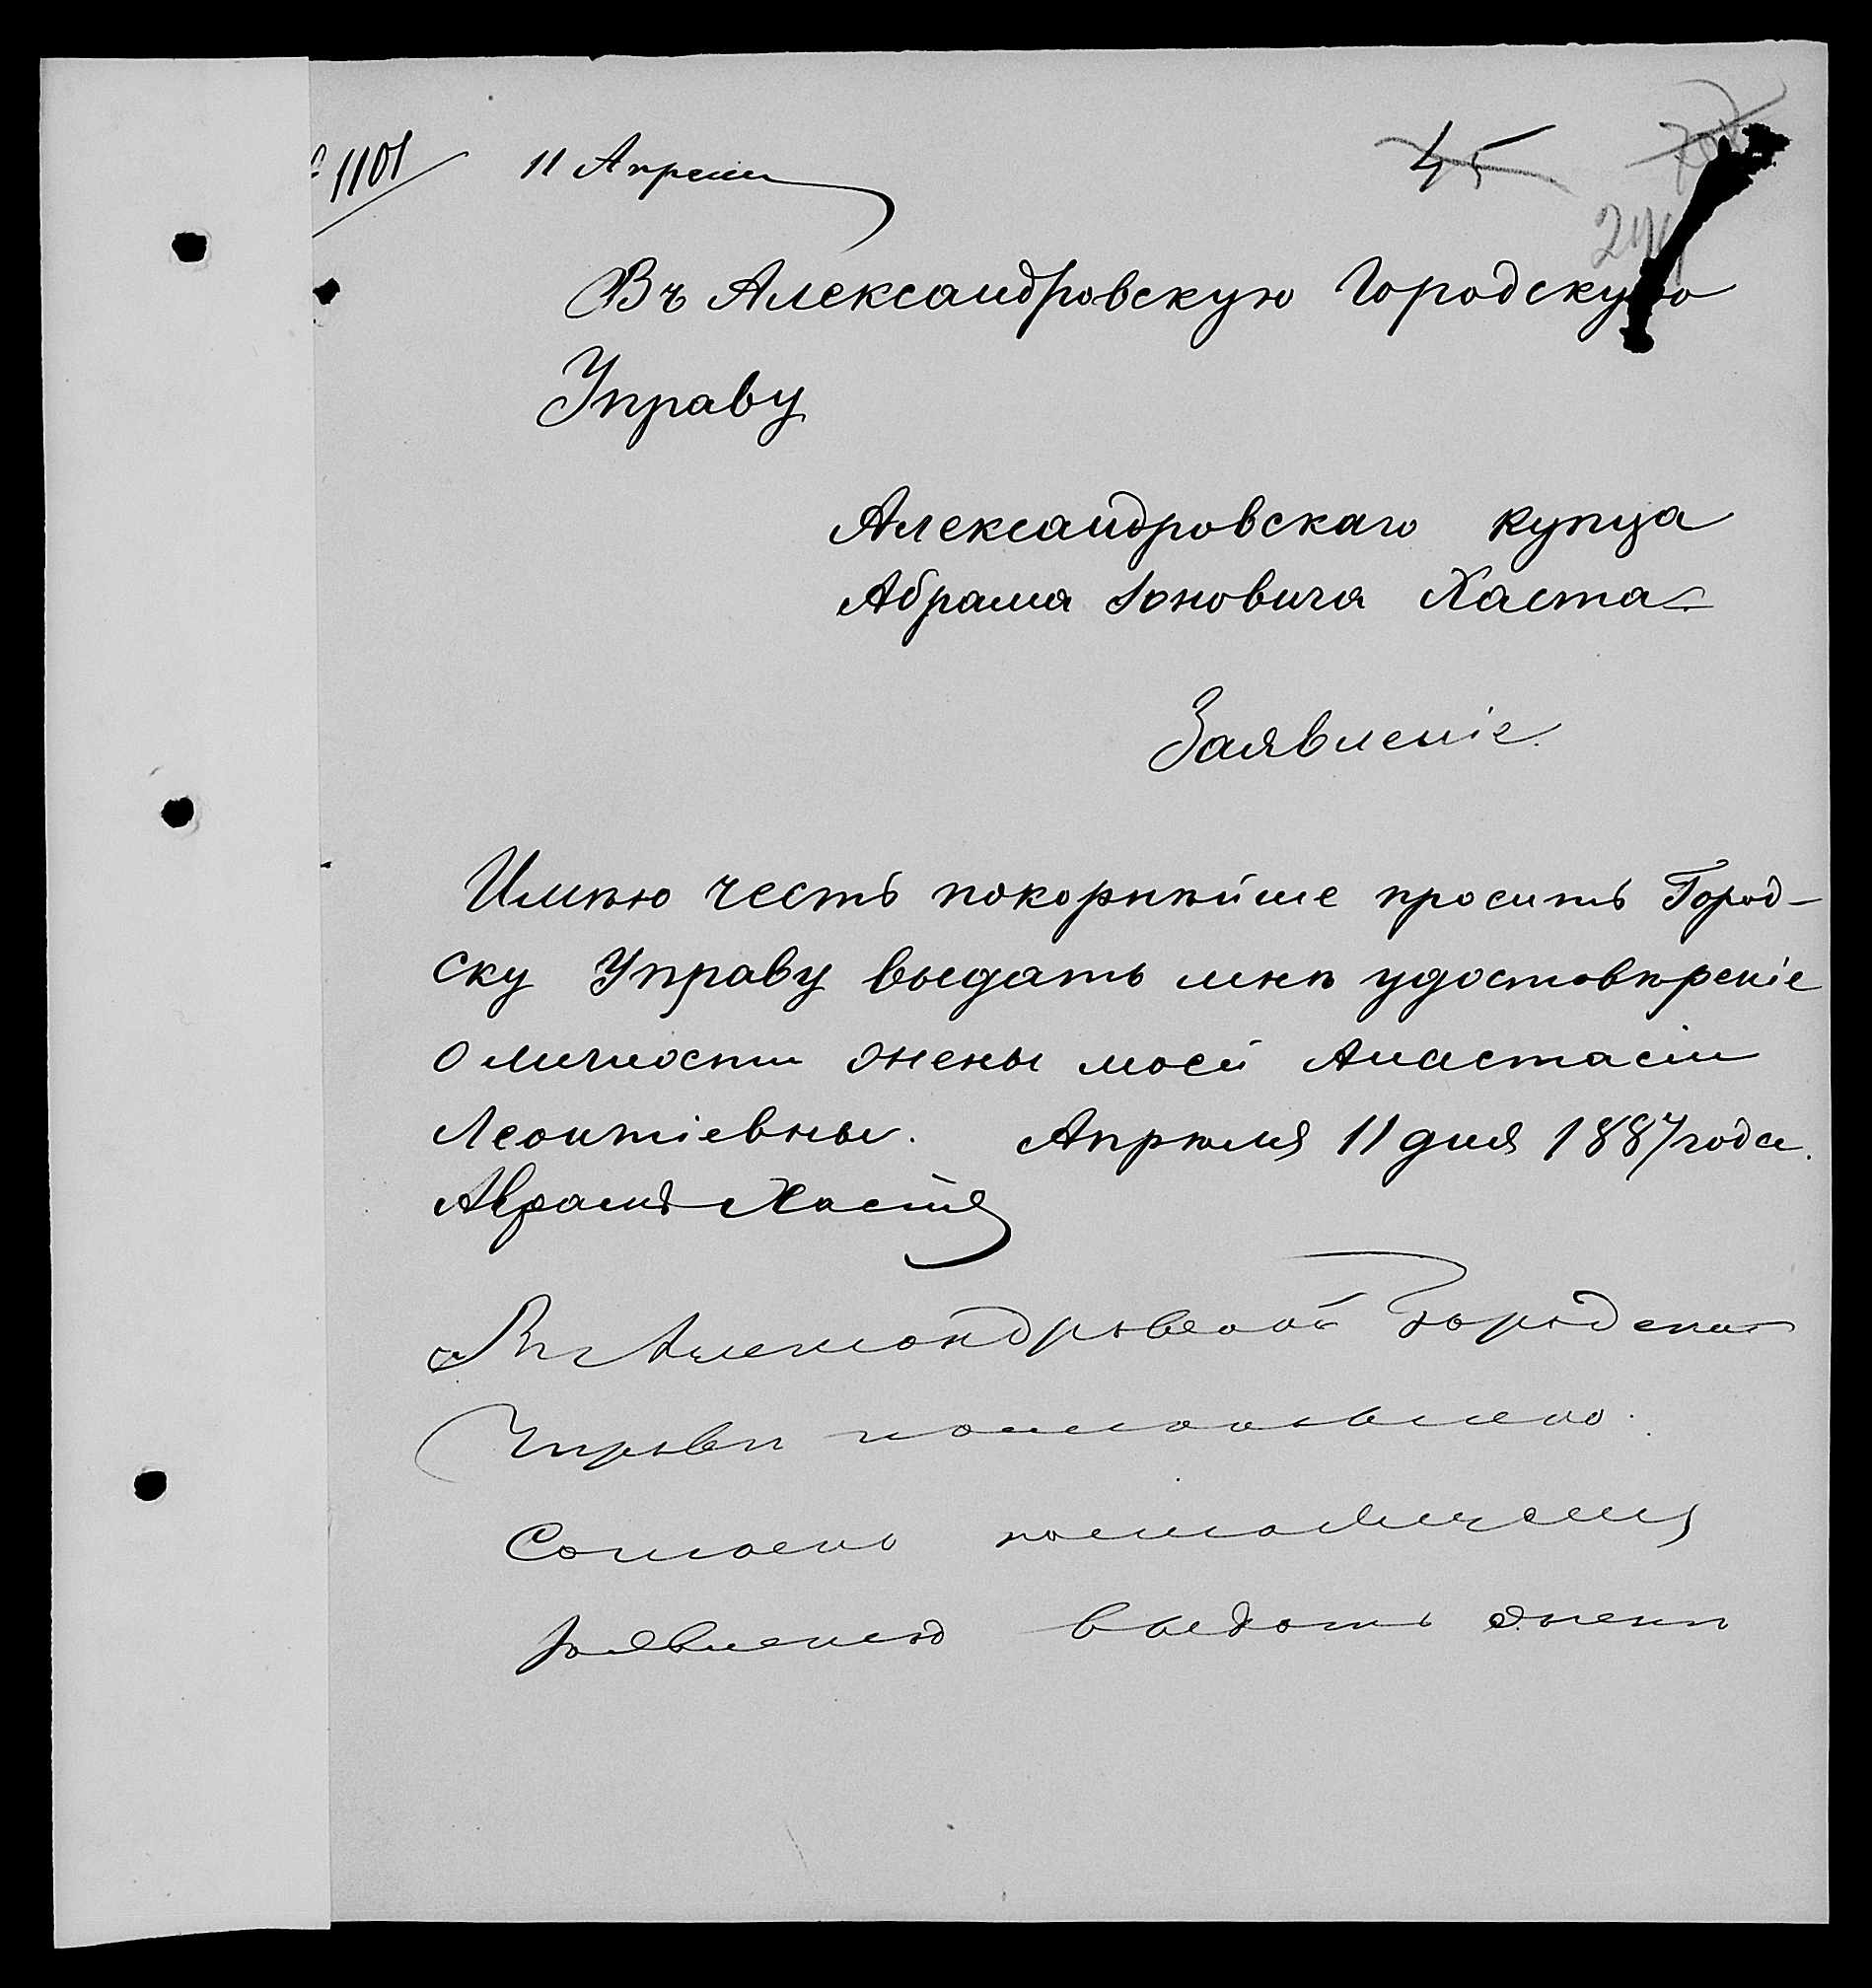 № 1101 11 Апреля 45
Въ Александровскую Городскую
Управу
Александровскаго купца
Абрама Іоновича Хаста
Заявленіе.
Имѣю честь покорнѣйше просить Город-
ску Управу выдать мнѣ удостовѣреніе
о личности жены моей Анастасіи
Леонтіевны. Апрѣля 11 дня 1887 года.
Абрамъ Хастъ
Въ Александровской Городской
Управѣ постановлено.
Согласно
заявленію выдать женѣ